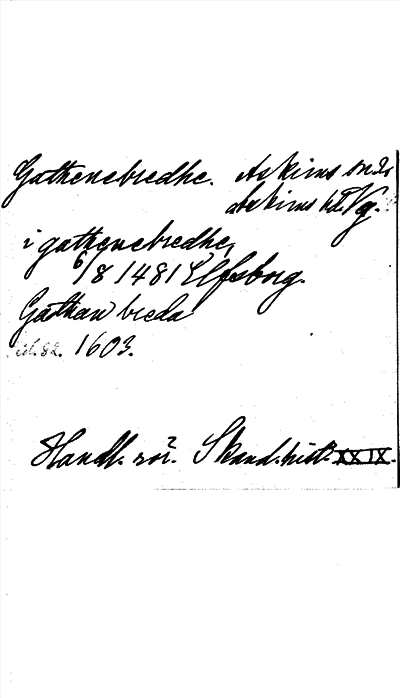 Gathenebredhe. Askims sn.
Askims hd Vg.
i gathenebredhe,
6/8 1481 Elfsborg.
Gathan breda
1603.
Handl. rör. Skand. hist. XXIX.